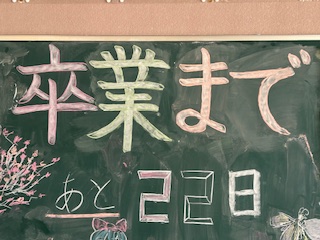 卒業まで
あと22日